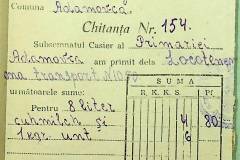 Comuna Adamovca
Chitanța Nr. 154.
Subsemnatul Casier al Primariei
Adamovca am primit dela Locoten
ma transport
SUMA
următoarele sume:
R. K. K. S. Pf
Pentru 8 liter
4 80
cuhmilch și
1 kgr. unt 6